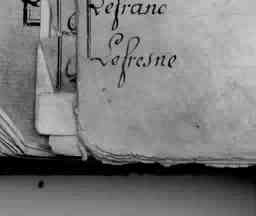 Lefranc
Lefresne